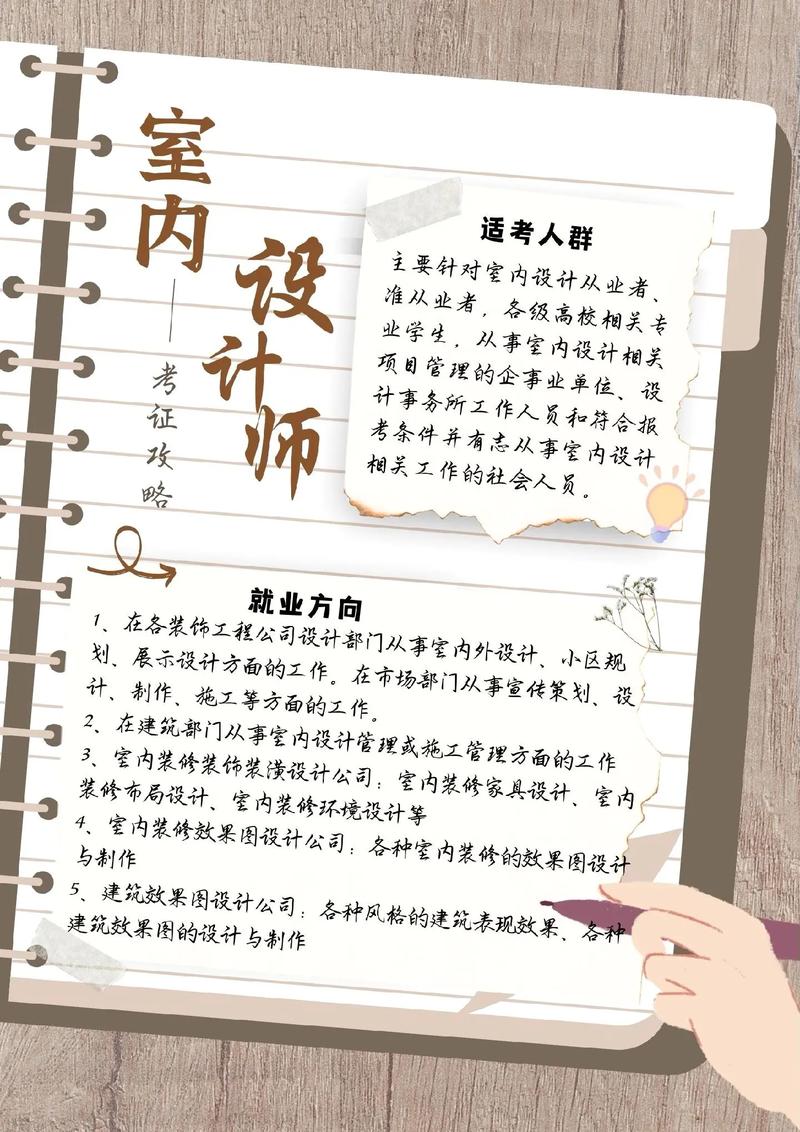 室内
设计师
考证攻略
适考人群
主要针对室内设计从业者、
准从业者，各级高校相关专
业学生，从事室内设计相关
项目管理的企事业单位、设
计事务所工作人员和符合报
考条件并有志从事室内设计
相关工作的社会人员。
就业方向
1、在各装饰工程公司设计部门从事室内外设计、小区规
划、展示设计方面的工作。在市场部门从事宣传策划、设
计、制作、施工等方面的工作。
2、在建筑部门从事室内设计管理或施工管理方面的工作
3、室内装修装饰装潢设计公司：室内装修家具设计、室内
装修布局设计、室内装修环境设计等
4、室内装修效果图设计公司：各种室内装修的效果图设计
与制作
5、建筑效果图设计公司：各种风格的建筑表现效果、各种
建筑效果图的设计与制作